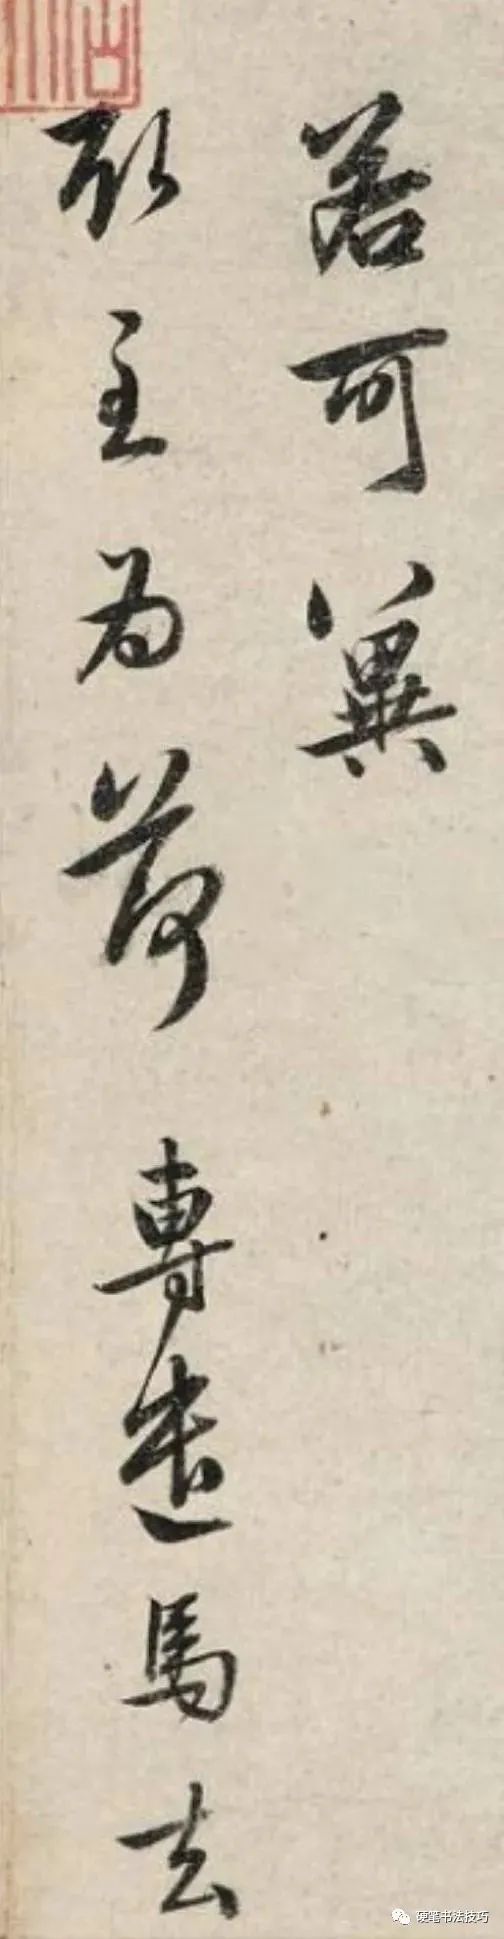 若可冀
取至為荷專遣馬去
硬笔书法技巧